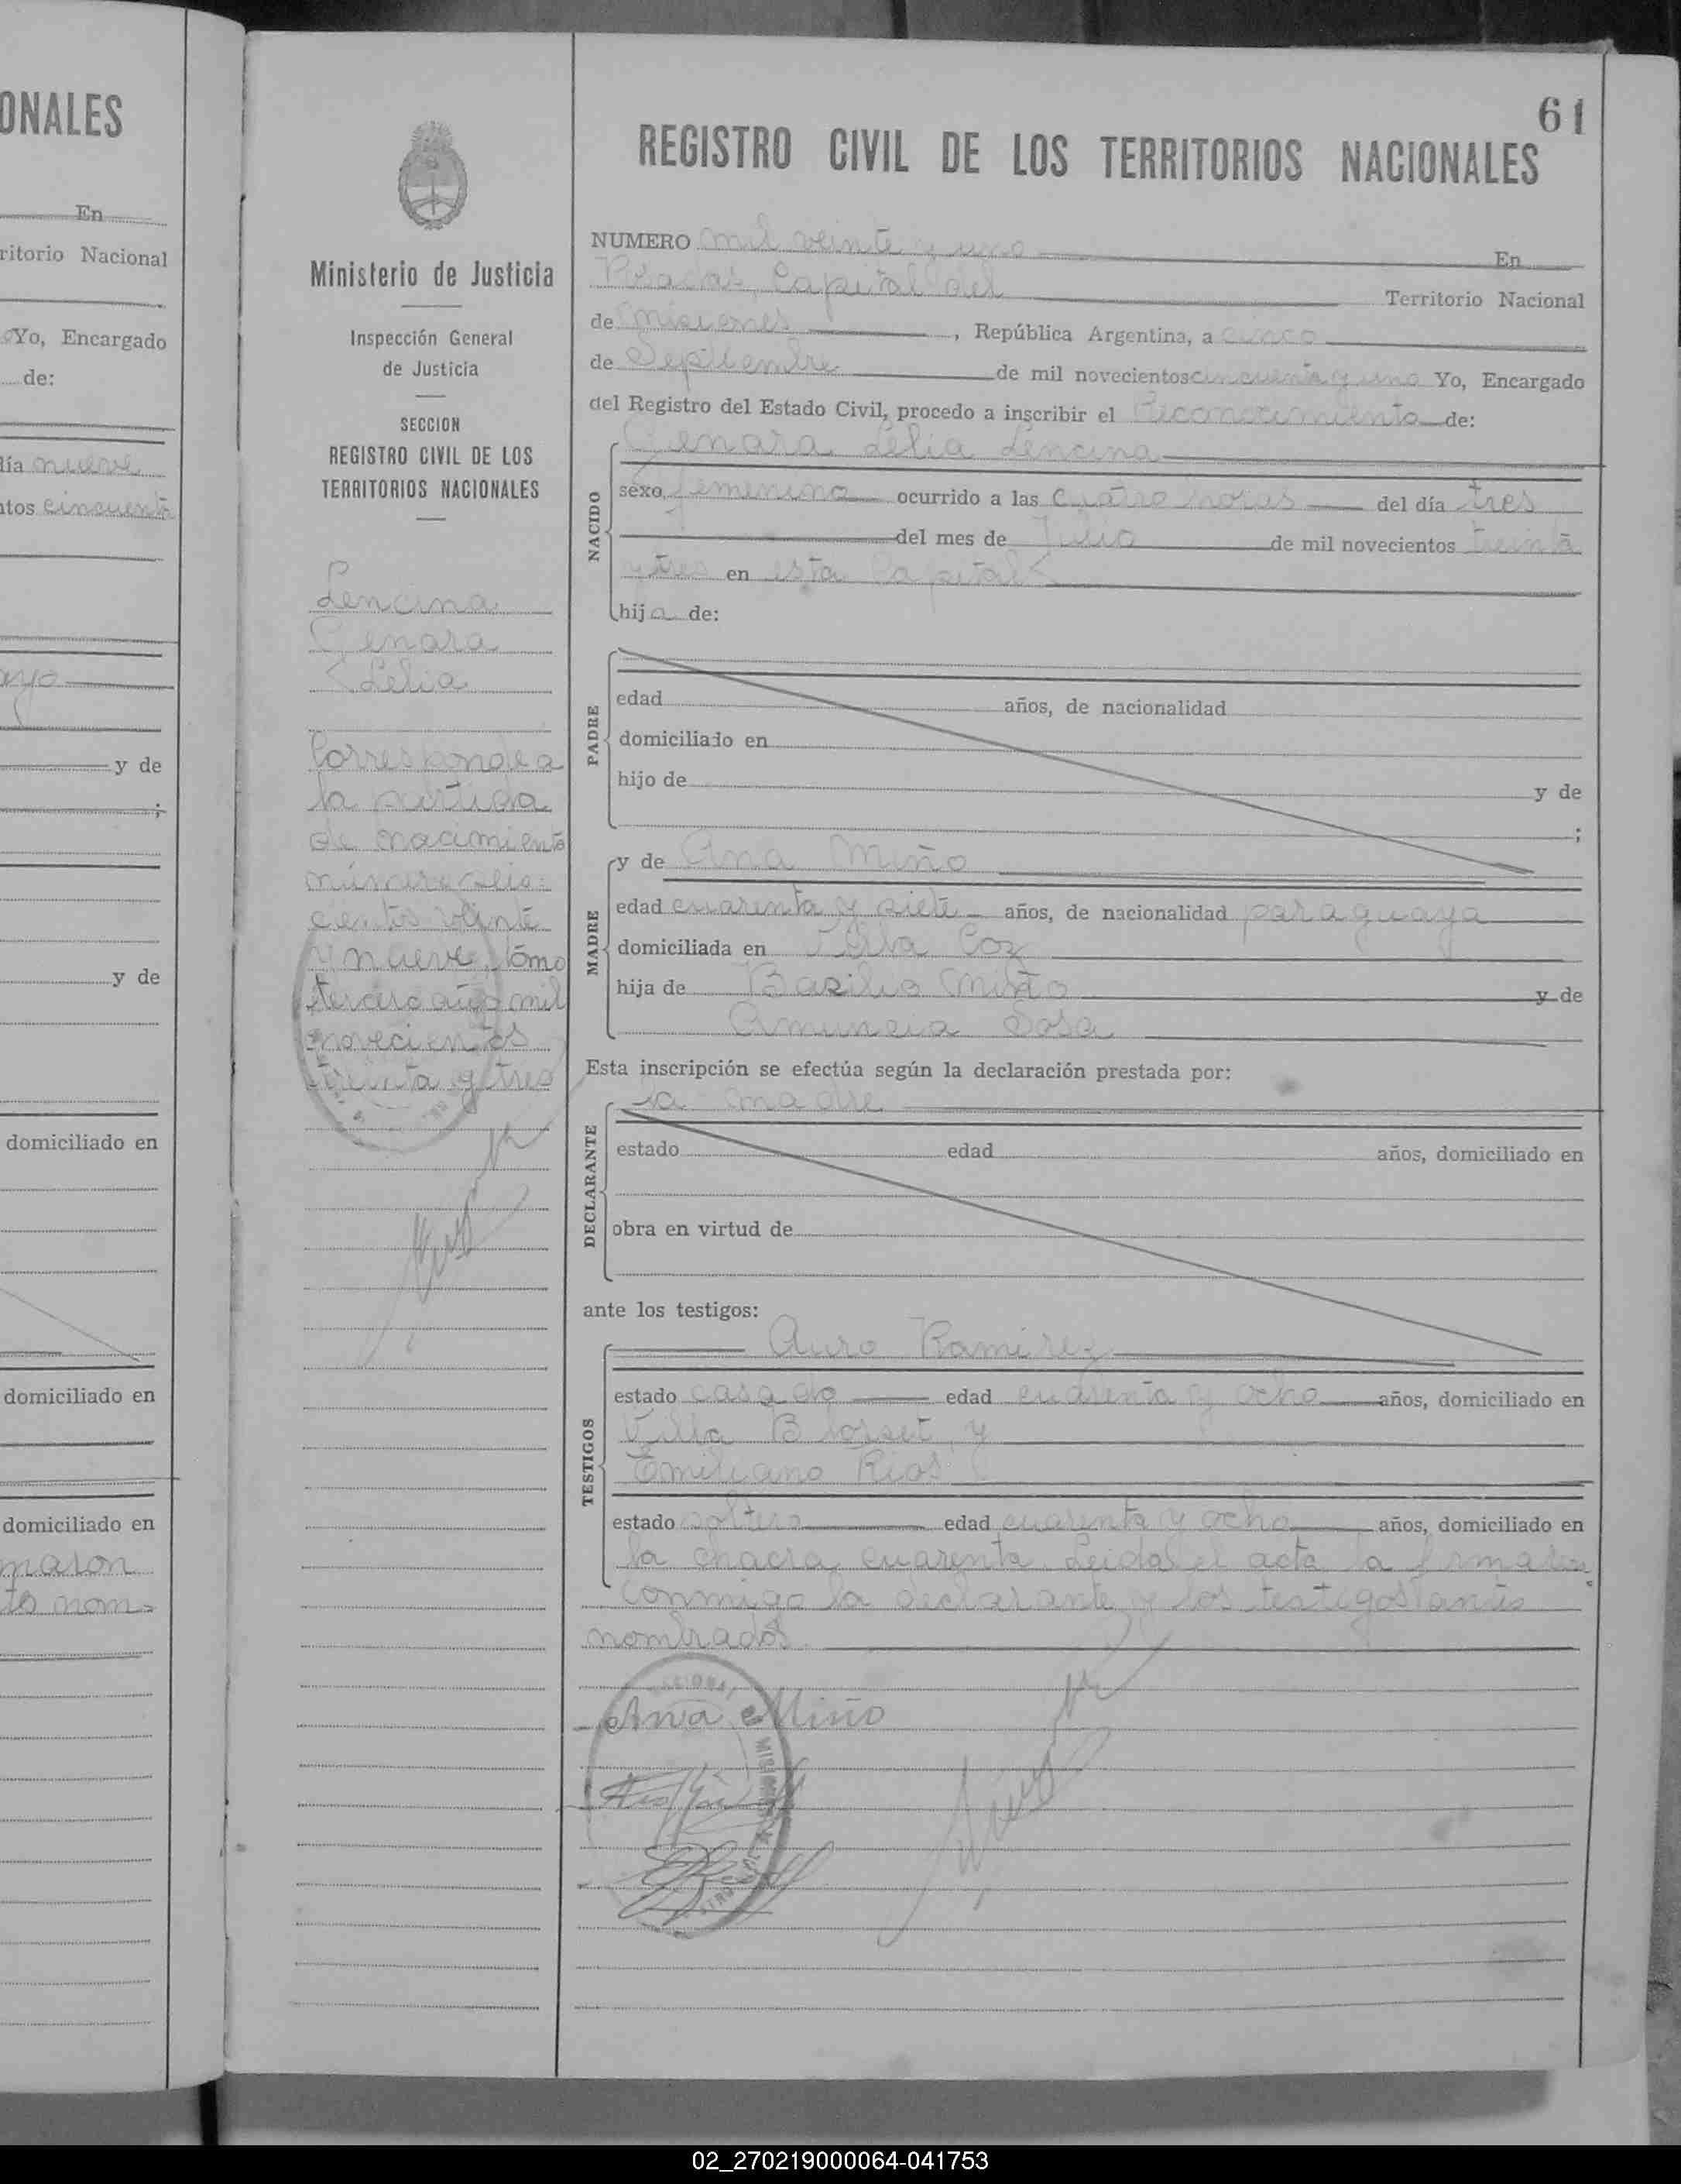 ONALES
En
ritorio Nacional
Yo, Encargado
de:
día nueve
ntos cincuenta
ayo
y de
;
y de
domiciliado en
domiciliado en
domiciliado en
maron
to nom-
Ministerio de Justicia
Inspección General
de Justicia
SECCION
REGISTRO CIVIL DE LOS
TERRITORIOS NACIONALES
Lencina
Genara
Lelia
Corresponde a
la partida
de nacimiento
número seis-
cientos veinte
y nueve, tomo
tercero año mil
novecientos
treinta y tres
61
REGISTRO CIVIL DE LOS TERRITORIOS NACIONALES
NUMERO mil veinte y uno En
Posadas, Capital del Territorio Nacional
de Misiones, República Argentina, a cinco
de Septiembre de mil novecientos cincuenta y uno Yo, Encargado
del Registro del Estado Civil, procedo a inscribir el Reconocimiento de:
Genara Lelia Lencina
NACIDO
sexo femenino ocurrido a las cuatro horas del día tres
del mes de Julio de mil novecientos treinta
y tres en esta Capital
hija de:
PADRE
edad años, de nacionalidad
domiciliado en
hijo de y de
;
MADRE
y de Ana Miño
edad cuarenta y siete años, de nacionalidad paraguaya
domiciliada en Villa Coz
hija de Basilio Miño y de
Amuncia Sosa
Esta inscripción se efectúa según la declaración prestada por:
la madre
DECLARANTE
estado edad años, domiciliado en
obra en virtud de
ante los testigos:
TESTIGOS
Auro Ramirez
estado casado edad cuarenta y ocho años, domiciliado en
Villa Blosset, y
Emiliano Rios
estado soltero edad cuarenta y ocho años, domiciliado en
la chacra cuarenta. Leida el acta la firmaron
conmigo la declarante y los testigos antes
nombrados
Ana Miño
02_270219000064-041753